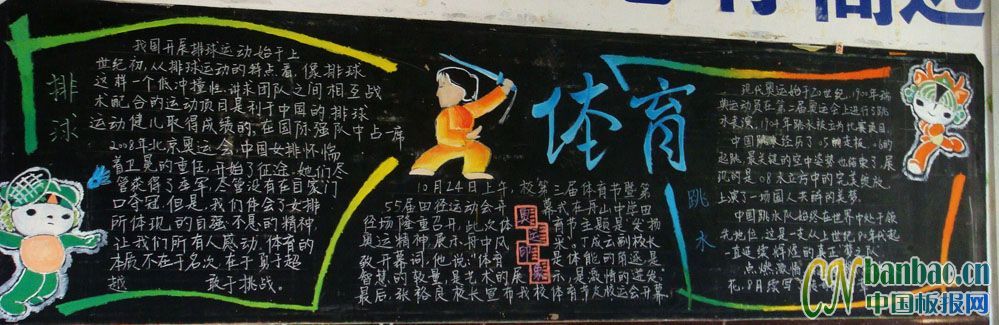 排球
我国开展排球运动始于上
世纪初,从排球运动的特点看,像排球
这样一个低冲撞性,讲求团队之间相互战
术配合的运动项目是利于中国的排球
运动健儿取得成绩的,在国际强队中占一席
2008年北京奥运会,中国女排怀惴
着卫冕的重任,开始了征途,她们尽
管获得了季军,尽管没有在自家门
口夺冠,但是,我们体会了女排
所体现的自强不息的精神,
让我们所有人感动,体育的
本质不在于名次,在于勇于超
越 敢于挑战。
体育
10月24日上午,校第三届体育节暨第
55届田径运动会开幕式在舟山中学田
径场隆重召开,此次体育节主题是发扬
奥运精神,展示舟中风采,丁成云副校长
致开幕词,他说:"体育是体能的角逐是
智慧的较量,是艺术的展示,是激情的迸发。
最后,张裕良校长宣布我校体育节及校运会开幕!
奥运印象
跳水
现代奥运始于20世纪,1900年瑞
奥运动员在第二届奥运会上进行了跳
水表演,1904年跳水被立为比赛项目,
中国
起跳,最关键的空中姿势也结束了,展
现的是08水立方中的完美绽放,
上演了一场国人夫畔的美梦。
中国跳水队始终在世界中处于领
先地位,这是一支从上世纪80年代起
一直延续辉煌的真正梦之队,
点燃激情
花,8月续写
CN banbao.cn
中国板报网